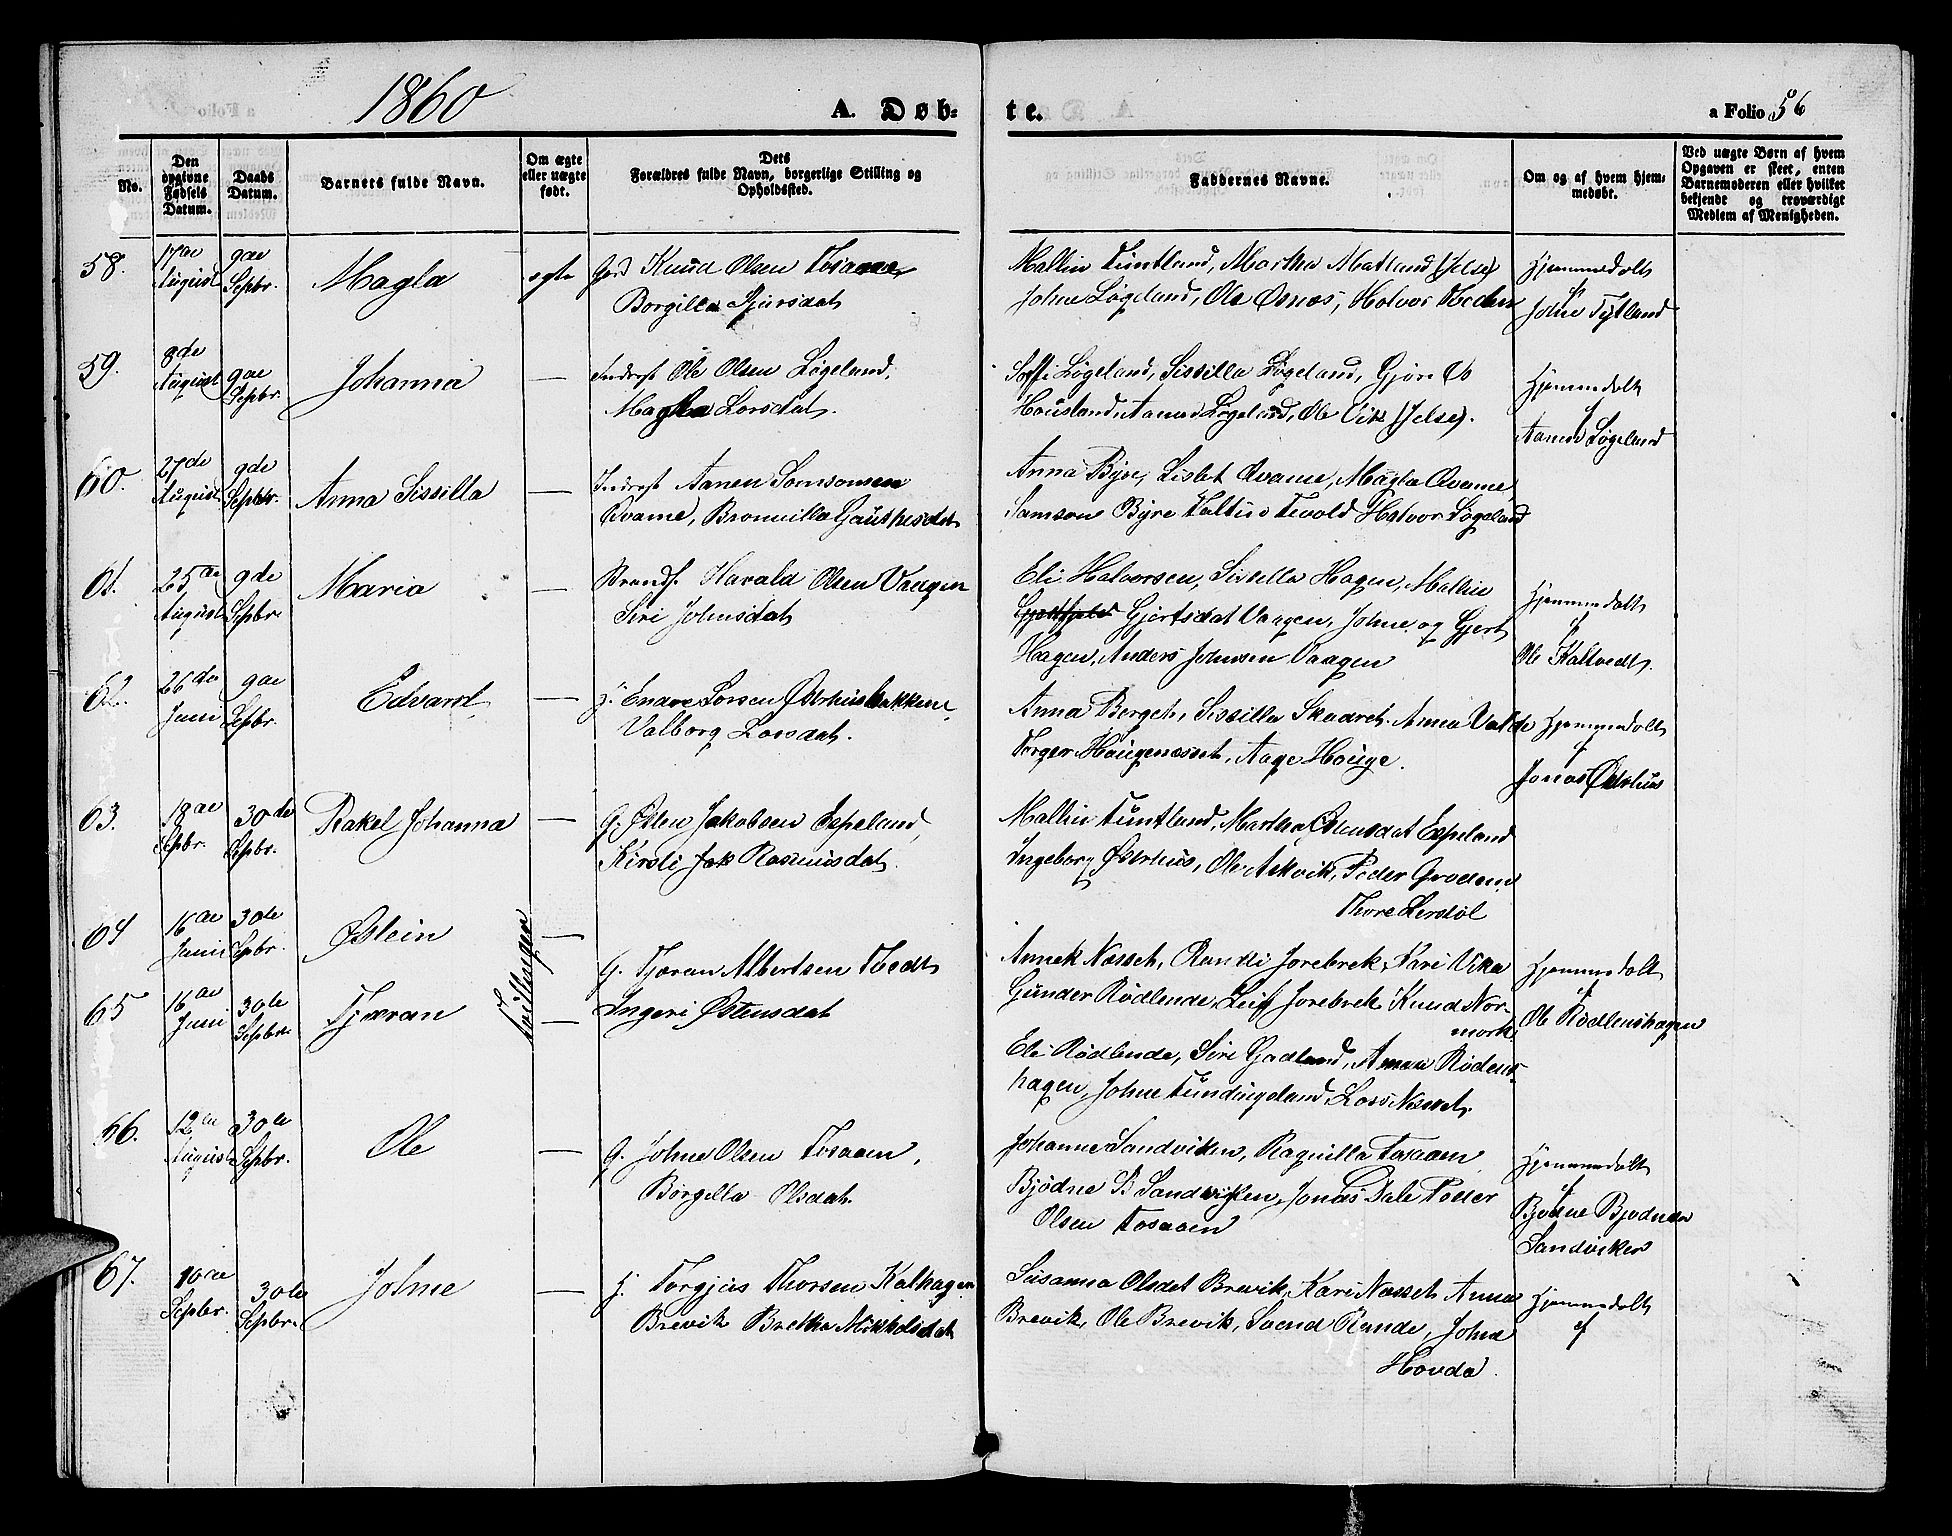 1860
A. Døb-
te.
a Folio 56
No.
Den opgivne Fødsels Datum.
Daabs Datum.
Barnets fulde Navn.
Om ægte eller uægte født.
Dets Forældres fulde Navn, borgerlige Stilling og Opholdssted.
Faddernes Navne.
Om og af hvem hjemmedøbt.
Ved uægte Børn af hvem Opgaven er skeet, enten Barnemoderen eller hvilket bekjendt og troværdigt Medlem af Menigheden.
58.
17de August
9de Sepbr.
Magla
egte
Knud Olsen Tosaaen
Borgilla Sjursdat
Mallin Tuntland, Martha Matland (Jelse)
Johne Løgeland, Ole Øsnes, Halvor
Hjemmedøbt
af
Johne Tytland
59.
8de August
9de Sepbr.
Johanna
—
Inderst Ole Olsen Løgeland,
Magla Larsdat.
Løgeland, Sissilla Løgeland, Gjøre
Housland, Aanen Løgeland, Ole Vik (Jelse).
Hjemmedøbt
af
Aanen Løgeland
60.
27de August
9de Sepbr.
Anna Sissilla
—
Inderst Aanen Samsonsen
Qvame, Bronnilla Gauthesdat
Anna Byre, Lisbet Qvame, Magla Qvame
Samson Byre Tevold Halvor Løgeland
61.
25de August
9de Sepbr.
Maria
—
Harald Olsen Vaagen
Siri Johnsdat
Eli Halvorsen, Sissilla Hagen, Mallin
Gjertsdat Vaagen, Johne og Gjert
Hagen, Anders Johnsen Vaagen
Hjemmedøbt
af
Ole Kaltvedt.
62.
26de Juni
9de Sepbr.
Edvard
—
g. Enare Larsen Østrhusbakken,
Valborg Larsdat.
Anna Berget, Sissilla Skaaret, Anna Valde
Torger Haugenæsset, Aage Houge.
Hjemmedøbt
af
Jonas Østrhus
63.
18de Sepbr.
30de Sepbr.
Rakel Johanna
—
g. Østen Jakobsen Espeland,
Kirsti Jak Rasmusdat.
Mallin Tuntland, Martha Østensdat Espeland
Ingeborg Østrhus, Ole Askvik, Peder Grodem
Thore Lerstøl
64
16de Juni
30de Sepbr.
Østein
Tvillinger
—
g. Tjøran Albertsen Tvedt
Ingeri Østensdat
Annek Næsset, Randi Jorebrek, Kari Vika
Gunder Rødlende, Leif Jorebrek Knud Nor-
mork
Hjemmedøbt
af
Ole Rødlenshagen
65
16de Juni
30de Sepbr.
Tjøran
—
Eli Rødlende, Siri Gadland, Anna Rødens-
hagen, Johne Tundingeland, Lars Næsset.
66.
12de August
30de Sepbr.
Ole
—
g. Johne Olsen Tosaaen,
Børgilla Olsdat.
Johanne Sandviken, Raguilla Tosaaen
Bjødne B Sandviken, Jonas Dale Peder
Olsen Tosaaen
Hjemmedøbt
af
Bjødne Bjødnsen
Sandviken
67.
10de Sepbr.
30de Sepbr.
Johne
—
g. Torgjus Thorsen Kalhagen
Brevik Bretha Mikkelsdat
Susanna Olsdat Brevik, Kari Næsset Anna
Brevik, Ole Brevik, Svend Rande, Johne
Hovda.
Hjemmedøbt
af